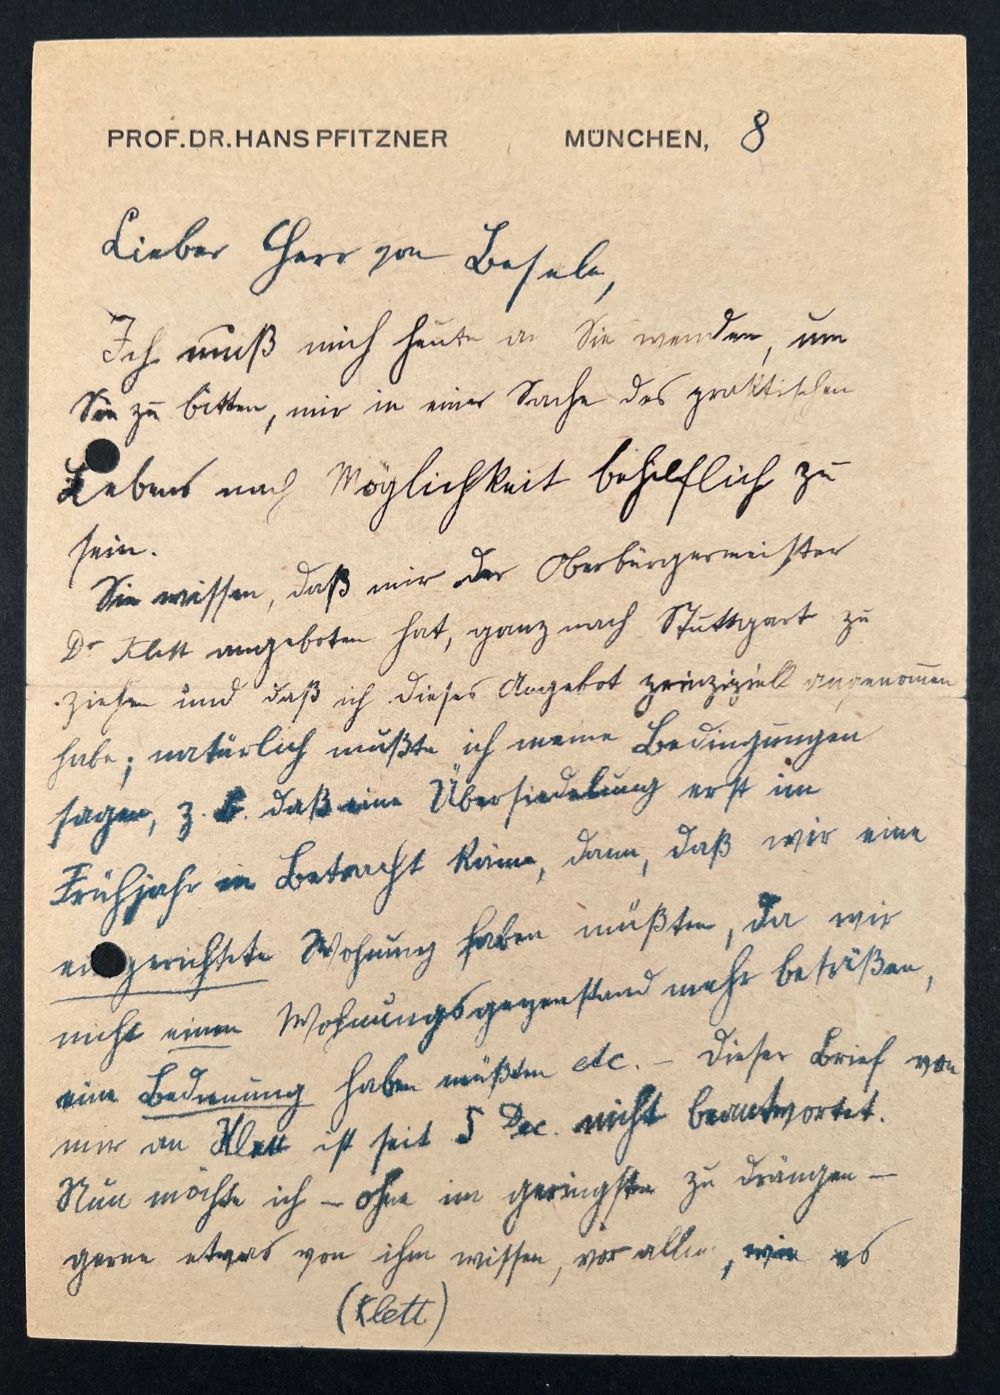 PROF. DR. HANS PFITZNER MÜNCHEN, 8
Lieber Herr von Besele,
Ich muß mich heute an Sie wenden, um
Sie zu bitten, mir in einer Sache des praktischen
Lebens nach Möglichkeit behilflich zu
sein.
Sie wissen, daß mir der Oberbürgermeister
Dr Klett angeboten hat, ganz nach Stuttgart zu
ziehen und daß ich dieses Angebot prinzipiell angenom̄en
habe; natürlich mußte ich meine Bedingungen
sagen, z. B. daß eine Übersiedelung erst im
Frühjahr in Betracht käme, dann, daß wir eine
eingerichtete Wohnung haben müßten, da wir
nicht einen Wohnungsgegenstand mehr besäßen,
eine Bedienung haben müßten etc. – Dieser Brief von
mir an Klett ist seit 5 Dec. nicht beantwortet.
Nun möchte ich – ohne im geringsten zu drängen –
gerne etwas von ihm wissen, vor allem, wie es
(Klett)